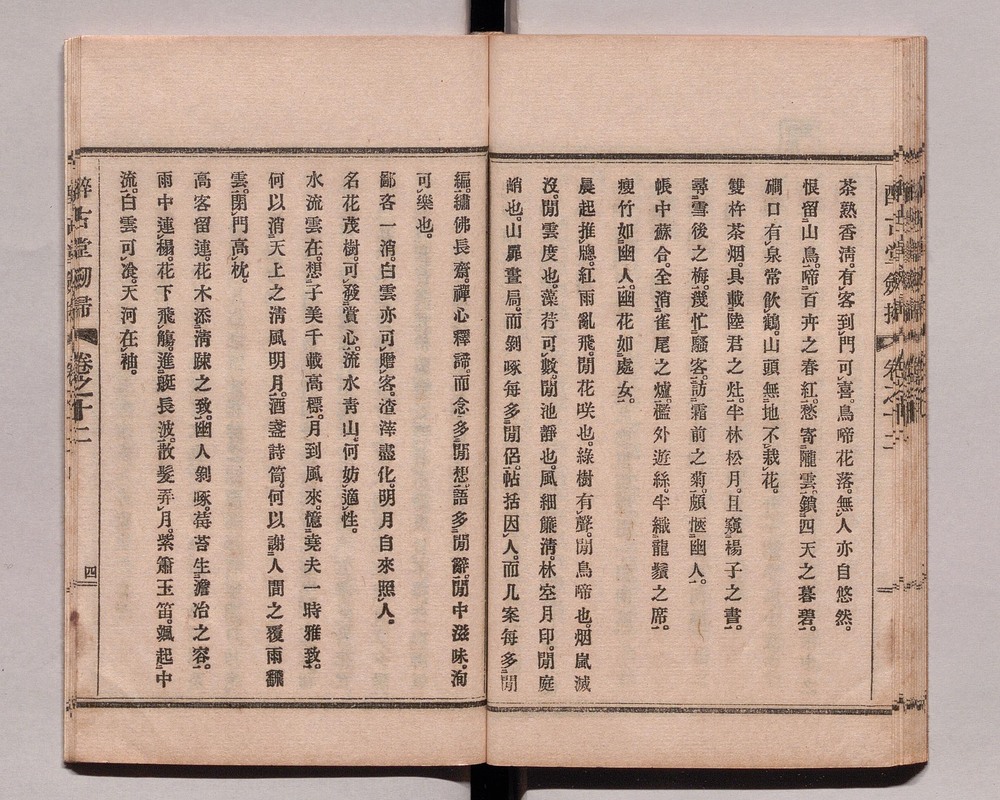 茶熟香淸。有客到門可喜。鳥啼花落。無人亦自悠然。
恨留山鳥。啼百卉之春紅。愁寄隴雲。鎖四天之暮碧。
澗口有泉常飮鶴。山頭無地不栽花。
雙杵茶烟。具載陸君之灶。半林松月。且窺楊子之書。
尋雪後之梅。幾忙騷客。訪霜前之菊。頗愜幽人。
帳中蘇合。全消雀尾之爐。檻外遊絲。半織龍鬚之席。
瘦竹如幽人。幽花如處女。
晨起推牕。紅雨亂飛。閒花咲也。綠樹有聲。閒鳥啼也。烟嵐滅
沒。閒雲度也。藻荇可數。閒池靜也。風細簾淸。林空月印。閒庭
峭也。山扉晝扃。而剝啄每多閒侶。帖括因人。而几案每多閒
編。繡佛長齋。禪心釋諦。而念多閒想。語多閒辭。閒中滋味。洵
可樂也。
鄙客一消。白雲亦可贈客。渣滓盡化。明月自來照人。
名花茂樹。可發賞心。流水靑山。何妨適性。
水流雲在。想子美千載高標。月到風來。憶堯夫一時雅致。
何以消天上之淸風明月。酒盞詩筒。何以謝人間之覆雨飜
雲。閉門高枕。
高客留連。花木添淸踈之致。幽人剝啄。莓苔生澹冶之容。
雨中連榻。花下飛觴。進艇長波。散髮弄月。紫簫玉笛。颯起中
流。白雲可飡。天河在袖。
醉古堂劒掃
卷之十二
四